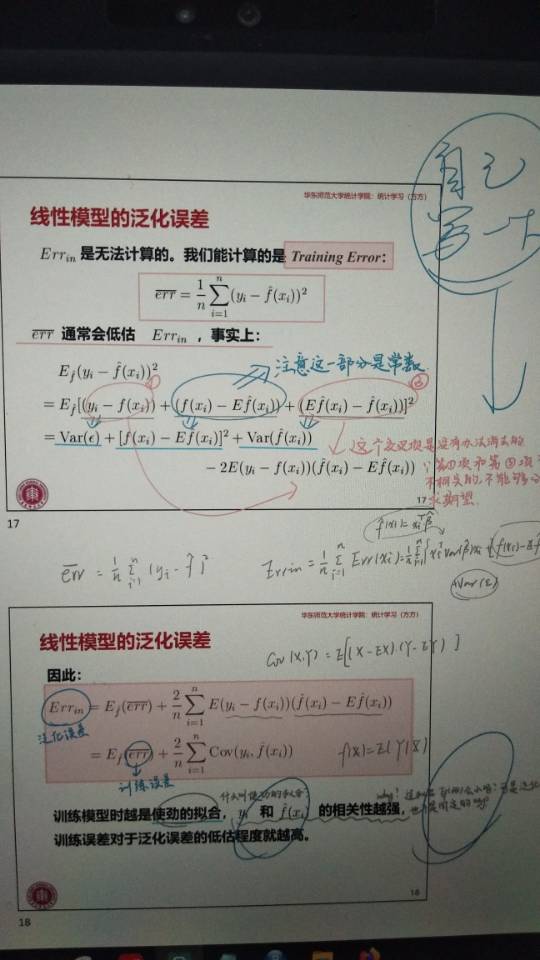 自己
写一下
华东师范大学统计学院:统计学习(方方)
线性模型的泛化误差
Err_in 是无法计算的。我们能计算的是 Training Error:
\overline{err} = \frac{1}{n}\sum_{i=1}^{n}(y_i − \hat{f}(x_i))^2
\overline{err} 通常会低估 Err_in ,事实上:
E_f(y_i − \hat{f}(x_i))^2
注意这一部分是常数
= E_f[(y_i − f(x_i)) + (f(x_i) − E\hat{f}(x_i)) + (E\hat{f}(x_i) − \hat{f}(x_i))]^2
= Var(ϵ) + [f(x_i) − E\hat{f}(x_i)]^2 + Var(\hat{f}(x_i))
这个交叉项是没有办法消去的
− 2E(y_i − f(x_i))(\hat{f}(x_i) − E\hat{f}(x_i))
∵第①项和第③项
求期望
17
17
\hat{f}(x_i) = x_i^T\hat{β}
\overline{err} = \frac{1}{n}\sum_{i=1}^{n}(y_i − \hat{f})^2
Err_in = \frac{1}{n}\sum_{i=1}^{n} Err(x_i) = \frac{1}{n}\sum_{i=1}^{n}
Var(ε)
华东师范大学统计学院:统计学习(方方)
线性模型的泛化误差
Cov(X,Y) = E[(X − EX)(Y − EY)]
因此:
Err_in = E_f(\overline{err}) + \frac{2}{n}\sum_{i=1}^{n} E(y_i − f(x_i))(\hat{f}(x_i) − E\hat{f}(x_i))
泛化误差
= E_f(\overline{err}) + \frac{2}{n}\sum_{i=1}^{n} Cov(y_i, \hat{f}(x_i))
f(X) = E(Y|X)
训练误差
什么叫使劲的拟合
why?
训练模型时越是使劲的拟合,y_i 和 \hat{f}(x_i) 的相关性越强,
训练误差对于泛化误差的低估程度就越高。
18
18